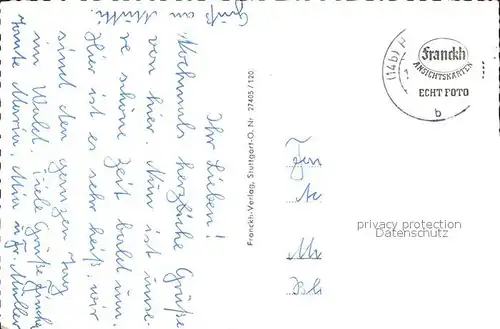 Ihr Lieben!
Nochmals herzliche Grüße
von hier. Nun ist unse-
re schöne Zeit bald um.
Hier ist es sehr heiß, wir
sind den ganzen Tag
im Wald. Viele Grüße
Tante Maria, u. Fr. Müller
Gruß an Mutti.
Franckh-Verlag, Stuttgart-O. Nr 27405/120
(14b)
b
Franckh
ANSICHTSKARTEN
ECHT FOTO
privacy protection
Datenschutz